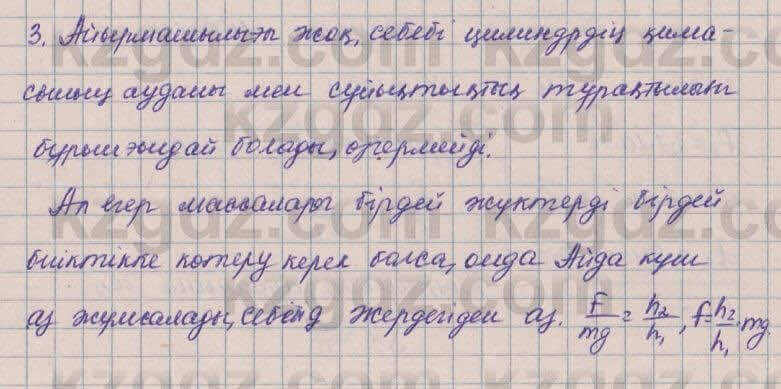 3. Айырмашылығы жоқ, себебі цилиндрдің қима-
сының ауданы мен сұйықтықтың тұрақтылығы
бұрынғыдай болады, өзгермейді.
Ал егер массалары бірдей жүктерді бірдей
биіктікке көтеру керек болса, онда Айда күш
аз жұмсалады, себебі g жердегіден аз. F/mg = h₂/h₁, f = h₂/h₁ · mg.
kzgdz.com